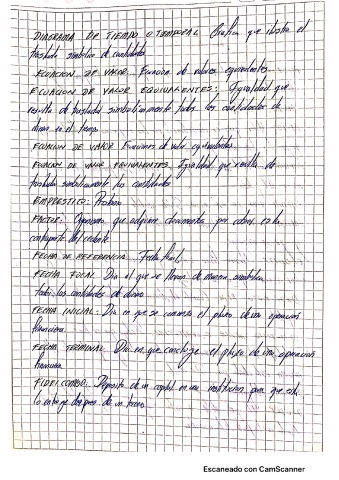 DIAGRAMA DE TIEMPO O TEMPORAL Grafica que ilustra el
traslado simbolico de cantidades
ECUACION DE VALOR Ecuacion de valores equivalentes
ECUACION DE VALOR EQUIVALENTES: Igualdad que
resulta de trasladar simbolicamente todas las cantidades de
dinero en el tiempo
ECUACION DE VALOR Ecuaciones de valor equivalentes
ECUACION DE VALOR EQUIVALENTES Igualdad que resulta de
trasladar simbolicamente las cantidades
EMPRESTITO: Prestamo
FACTOR: Organismo que adquiere documentos por cobrar, es la
contraparte del cedente
FECHA DE REFERENCIA Fecha focal
FECHA FOCAL Dia al que se llevan de manera simbolica
todas las cantidades de dinero
FECHA INICIAL: Dia en que se comienza el plazo de una operacion
financiera
FECHA TERMINAL Dia en que concluye el plazo de una operacion
financiera
FIDEICOMISO: Deposito de un capital en una institucion para que esta
lo entregue despues de un tiempo
Escaneado con CamScanner